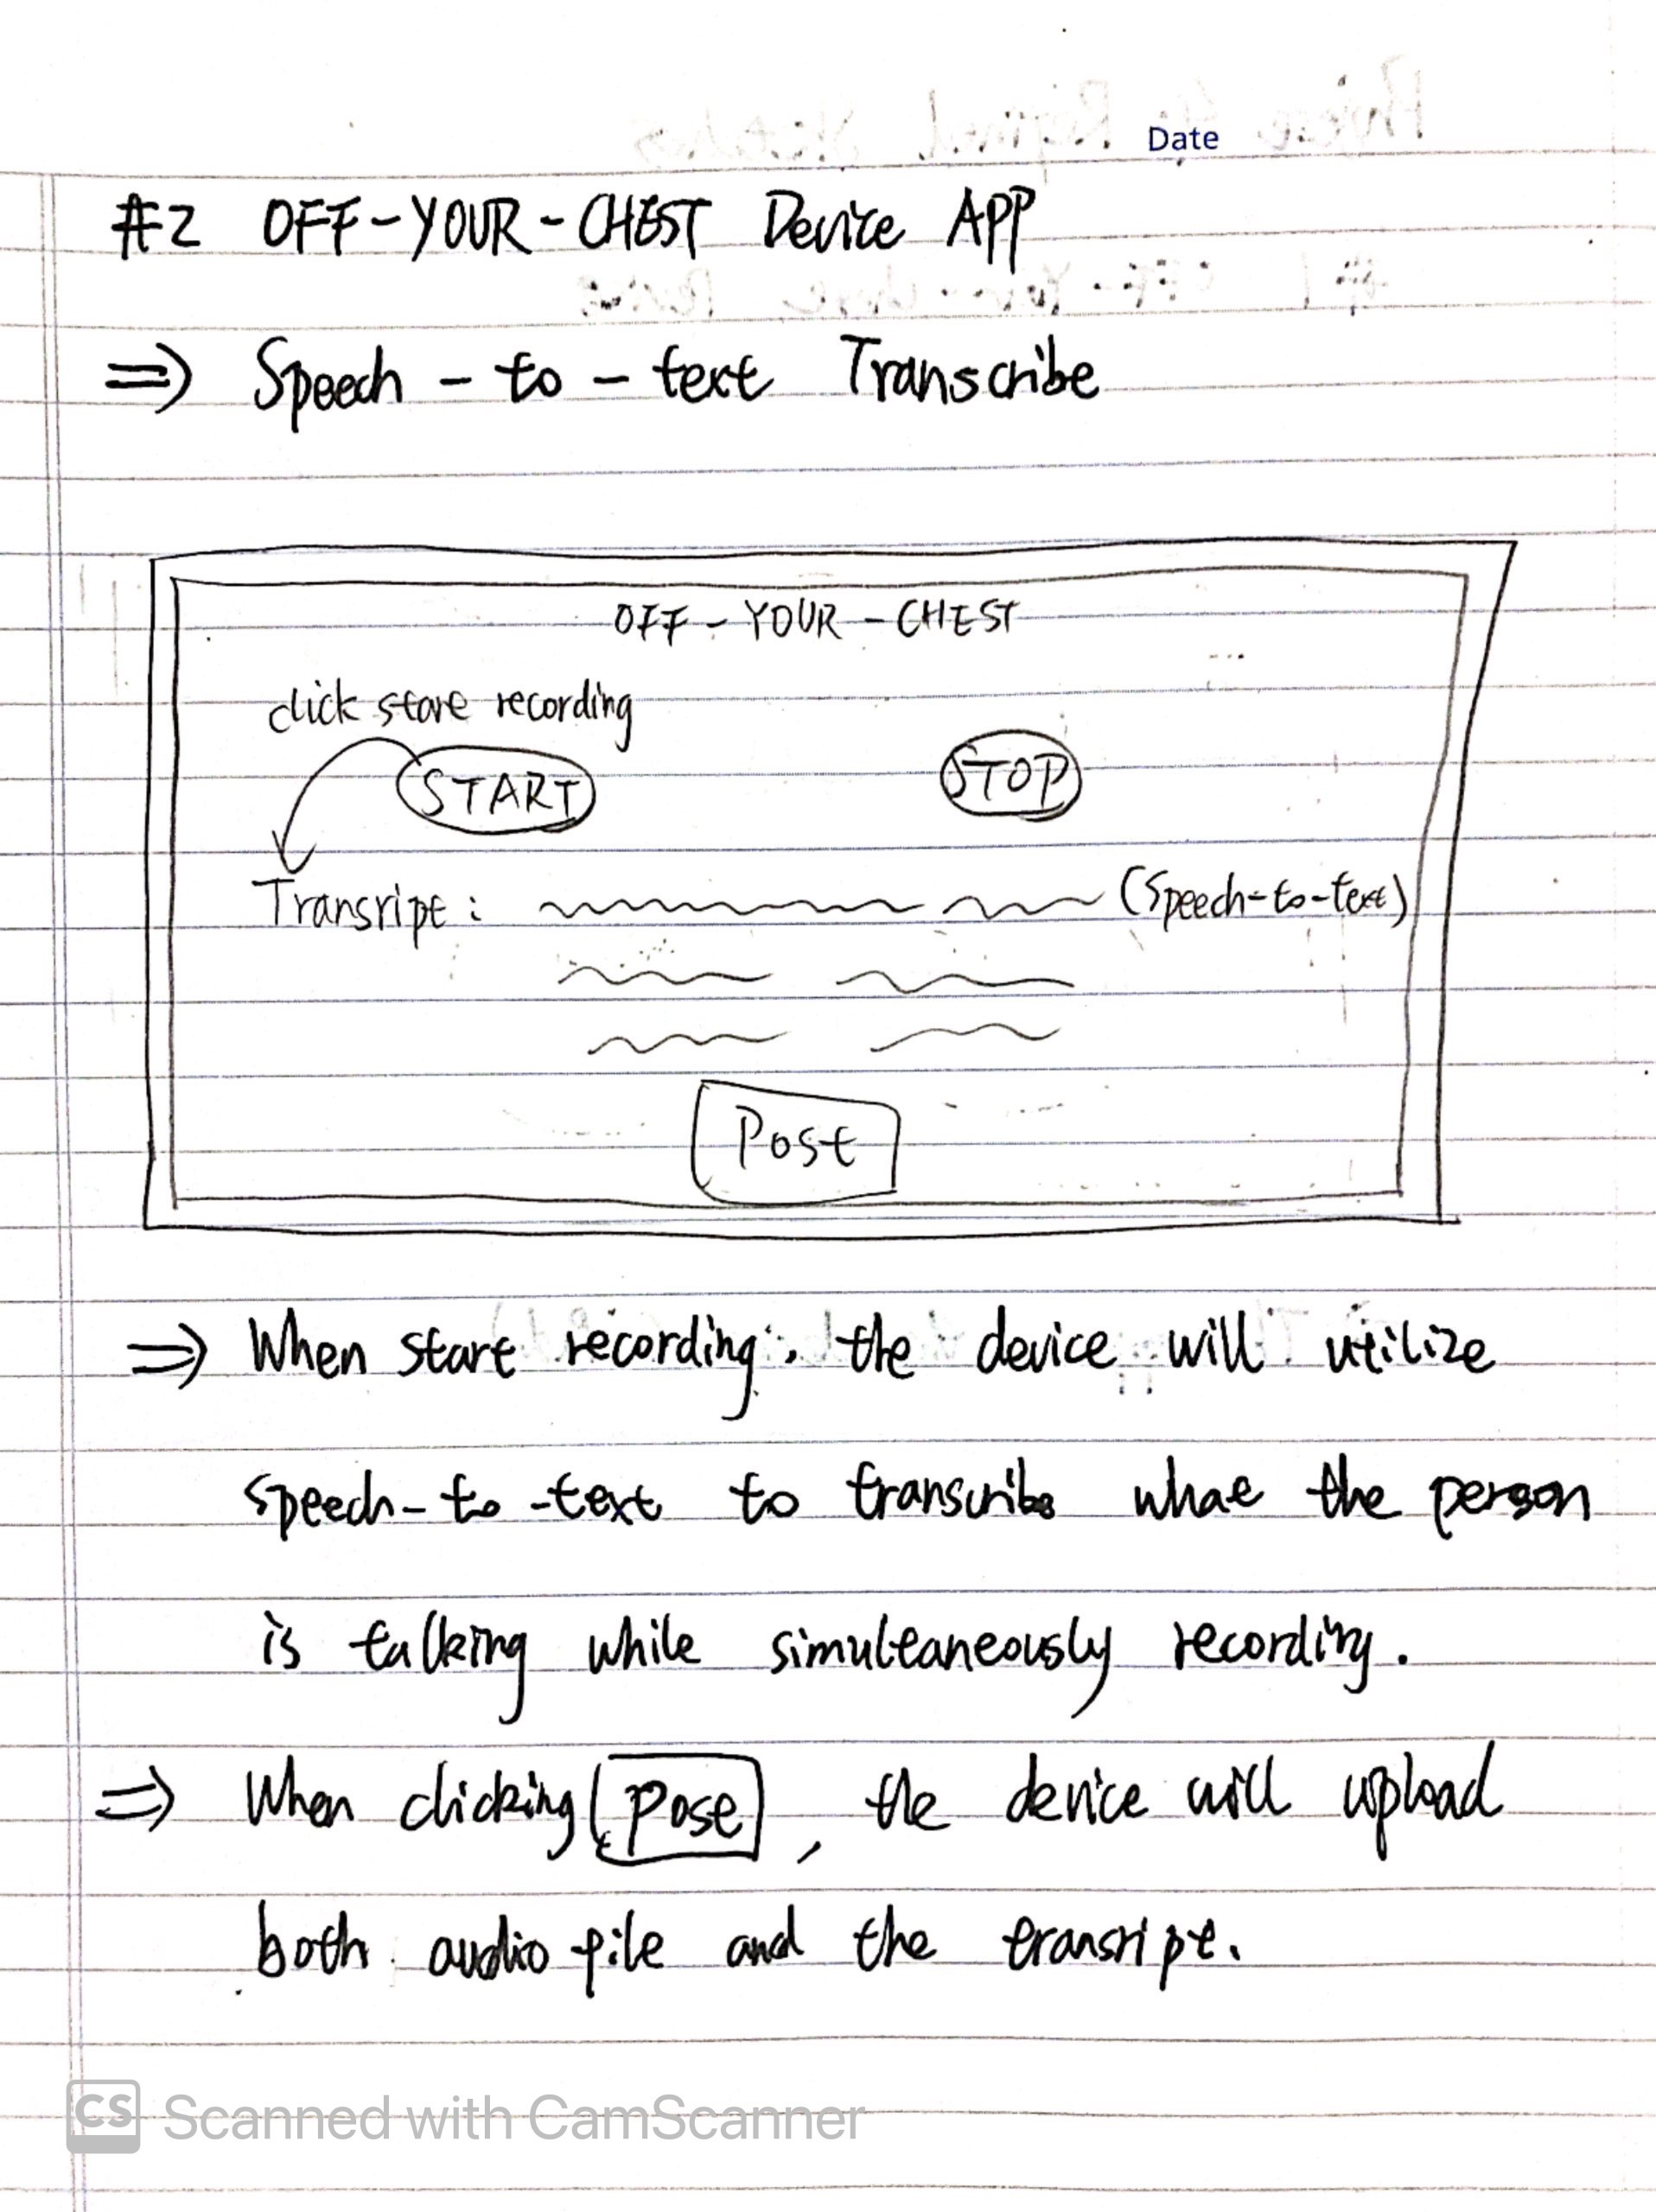 Date
#2 OFF-YOUR-CHEST Device APP
⇒ Speech-to-text Transcribe
OFF-YOUR-CHEST
click start recording
START STOP
Transript: (Speech-to-text)
Post
⇒ When start recording, the device will utilize
speech-to-text to transcribe what the person
is talking while simultaneously recording.
⇒ When clicking Post, the device will upload
both audio file and the transript.
CS Scanned with CamScanner